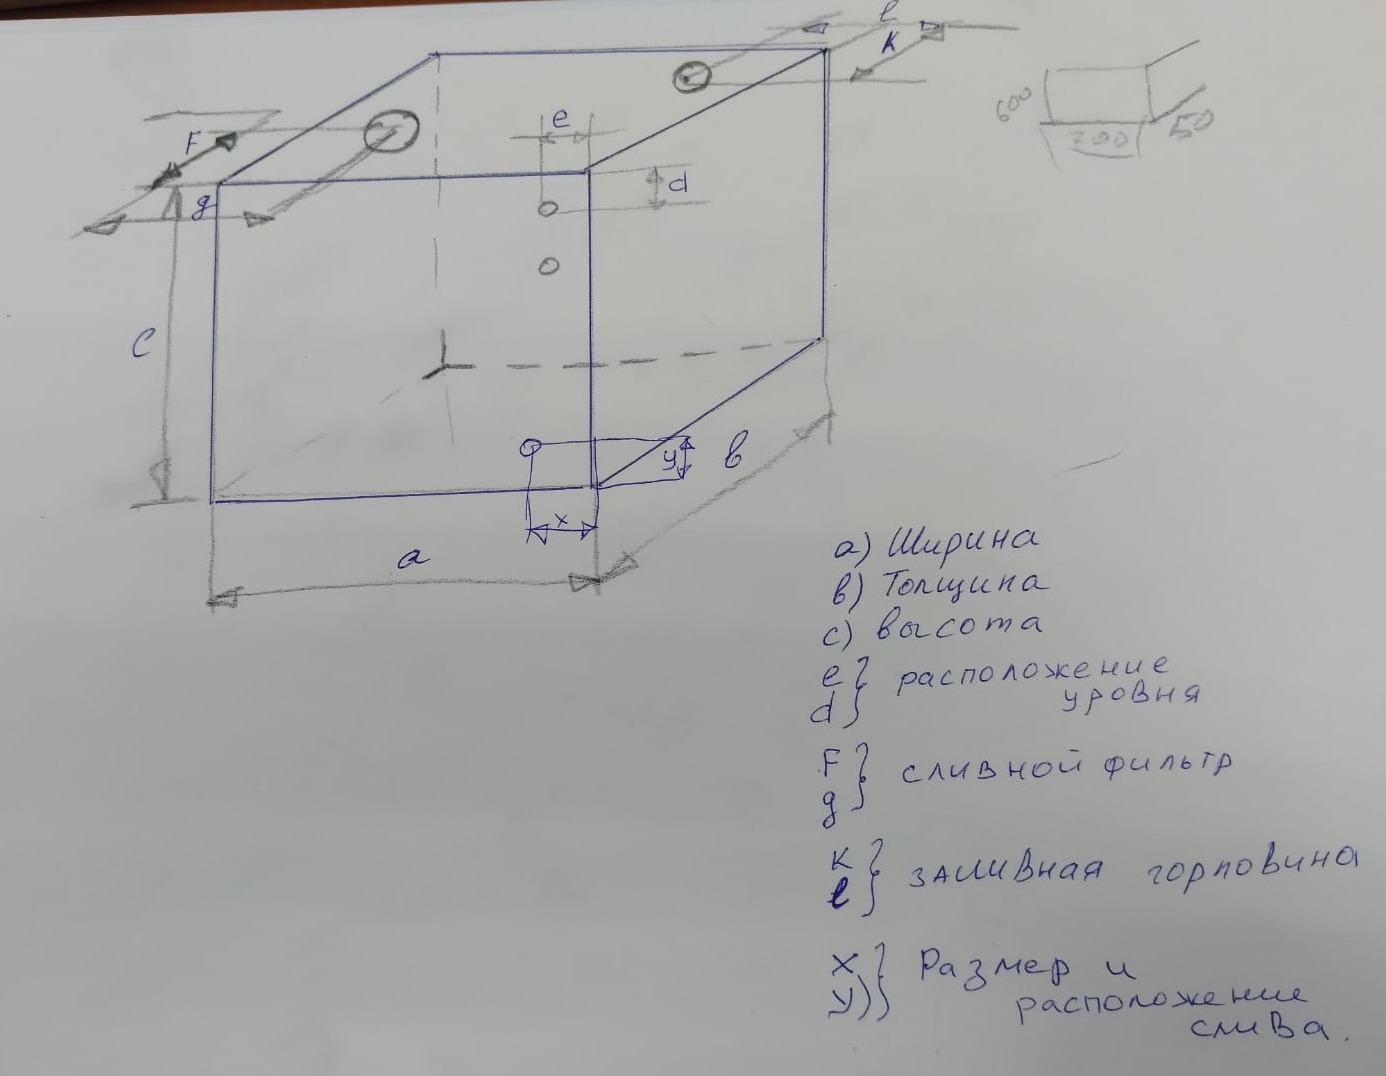 l
K
F
e
600
700
50
g
d
c
y
в
x
a
a) Ширина
в) Толщина
c) высота
e
d } расположение
уровня
F
g } сливной фильтр
K
l } заливная горловина
X
y) } Размер и
расположение
слива.